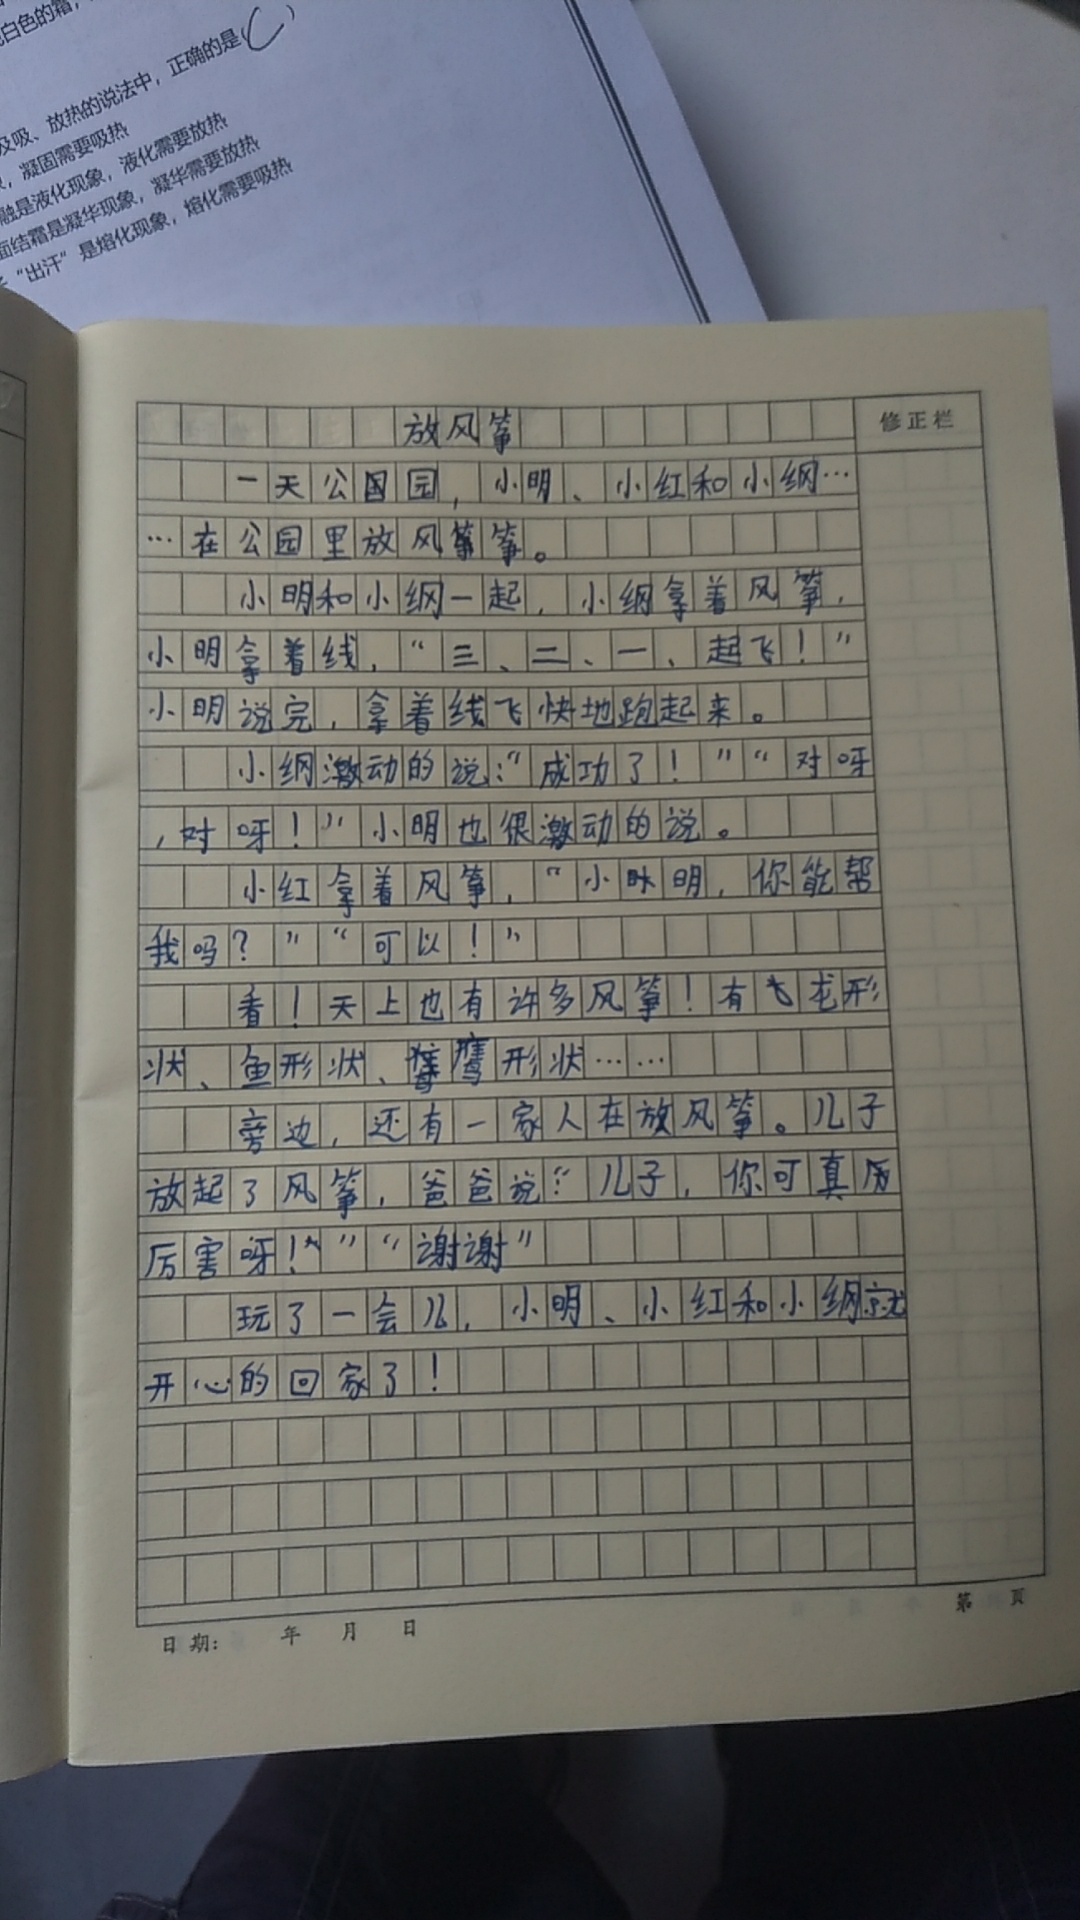 白色的霜，
及吸、放热的说法中，正确的是（
，凝固需要吸热
融是液化现象，液化需要放热
面结霜是凝华现象，凝华需要放热
“出汗”是熔化现象，熔化需要吸热
放风筝
修正栏
一天公国园，小明、小红和小纲…
…在公园里放风筝筝。
小明和小纲一起，小纲拿着风筝，
小明拿着线，“三、二、一、起飞！”
小明说完，拿着线飞快地跑起来。
小纲激动的说：“成功了！”“对呀
，对呀！”小明也很激动的说。
小红拿着风筝，“小明，你能帮
我吗？”“可以！”
看！天上也有许多风筝！有飞龙形
状、鱼形状、鹰形状……
旁边，还有一家人在放风筝。儿子
放起了风筝，爸爸说：“儿子，你可真厉
厉害呀！”“谢谢”
玩了一会儿，小明、小红和小纲就
开心的回家了！
日期： 年 月 日
第 页